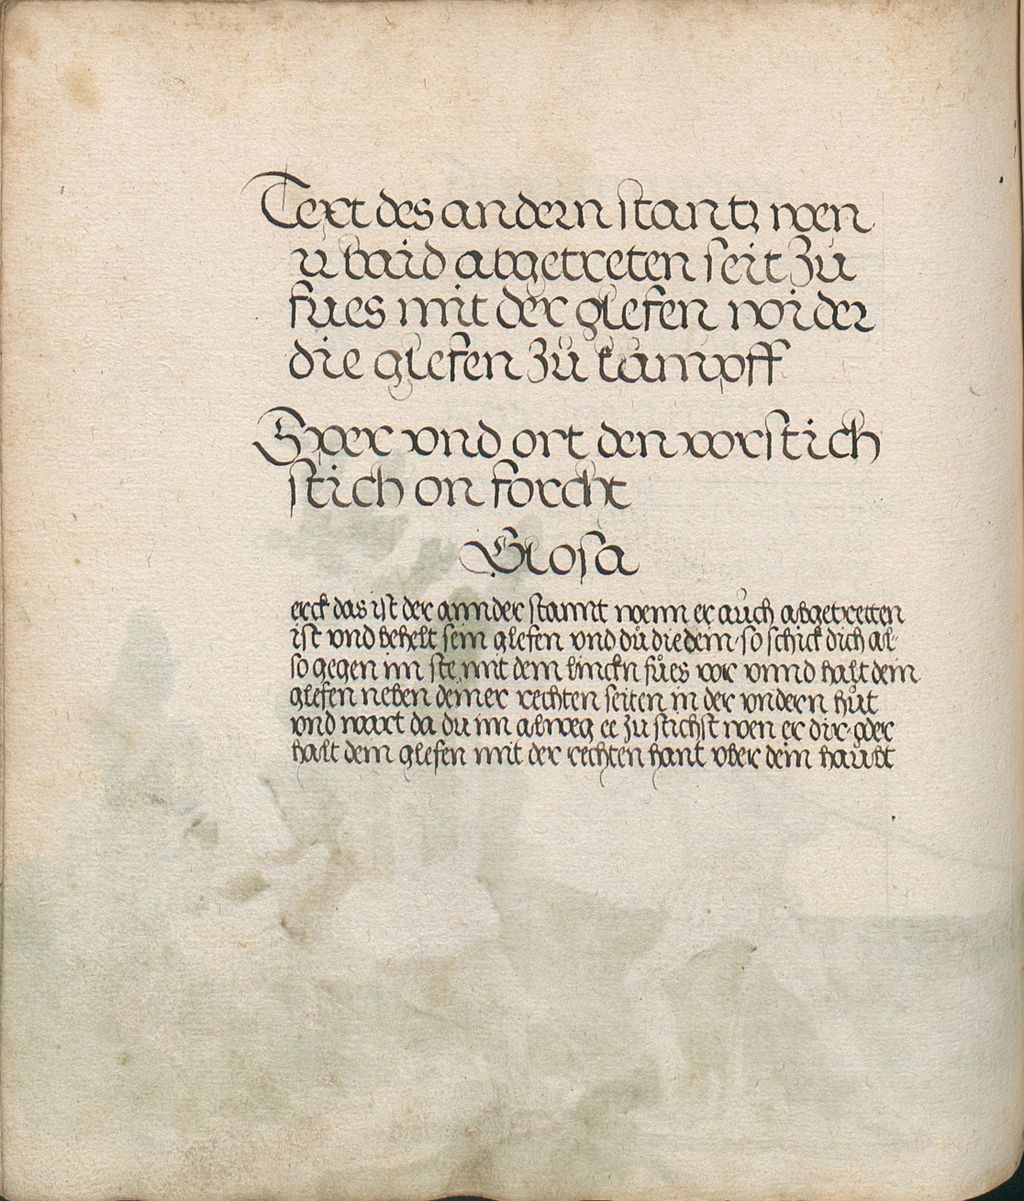 Text des andern stantz wen
ir baid abgetreten seit zu
fues mit der glefen wider
die glefen zu kampff
Sper vnd ort den vorstich
stich on forcht
Glosa
erck das ist der annder stannt wenn er auch abgetretten
ist vnd behelt sein glefen vnd dů die dein so schick dich al-
so gegen im ste mit dem linckn fůes vor vnnd halt dein
glefen neben deiner rechten seiten in der vndern hůt
vnd wart da du im alweg ee zu stichst wen er dir oder
halt dein glefen mit der rechten hant vber dein haubt